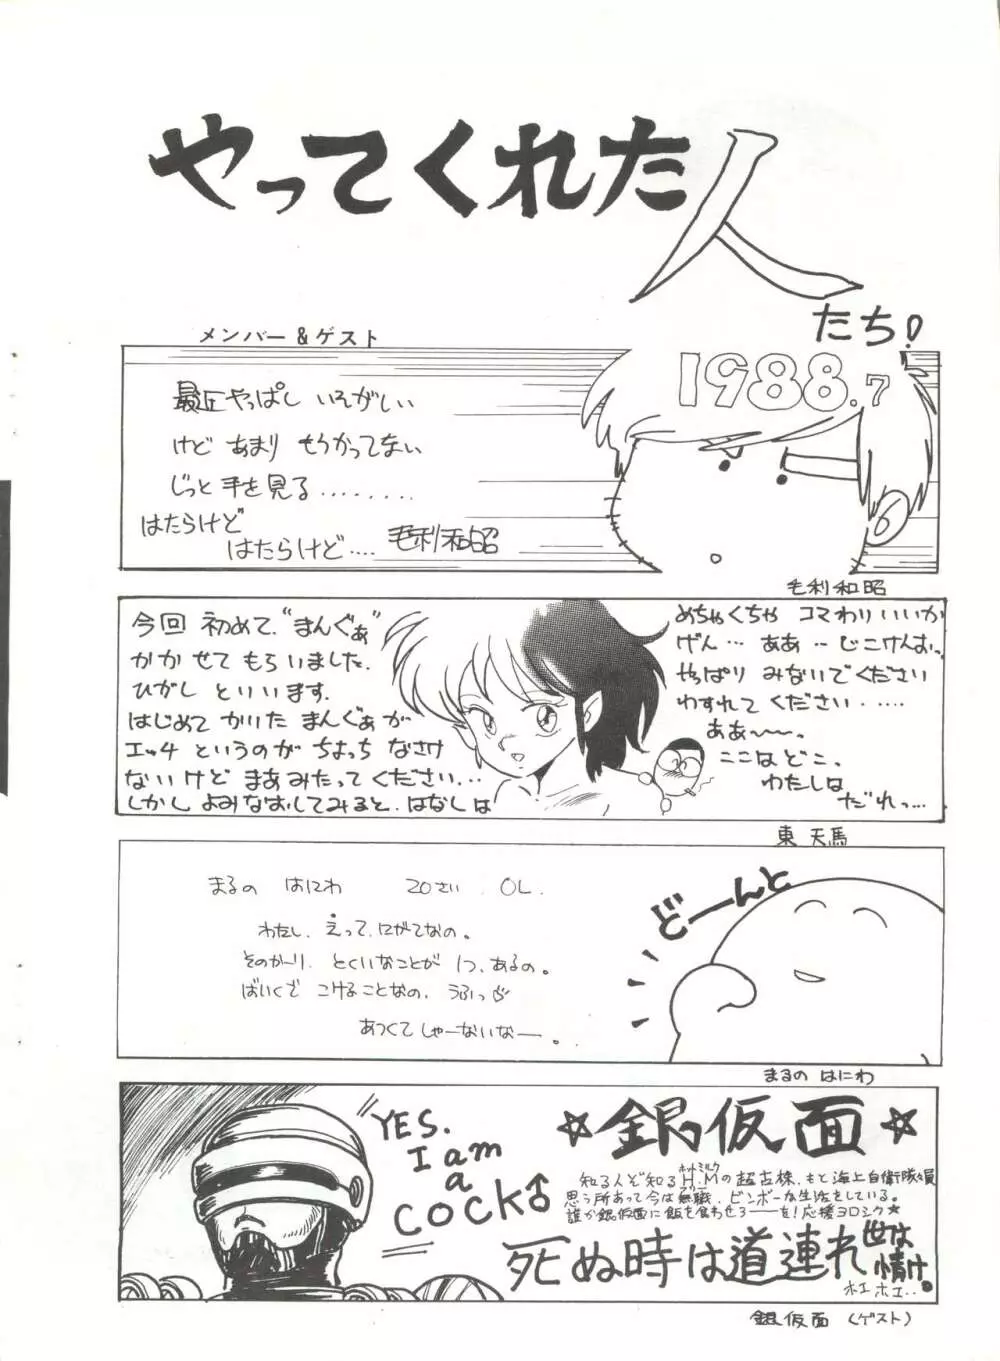 やってくれた人
たち!
1988.7
メンバー&ゲスト
最近やっぱし いそがしい
けど あまり もうかってない
じっと手を見る........
はたらけど
はたらけど.... 毛利和昭
毛利和昭
今回 初めて、"まんぐぁ"
かかせて もらいました.
ひがし といいます.
はじめて かいた まんぐぁが
エッチ というのが ちょっち なさけ
ないけど まあみたってください...
しかし よみなおしてみると、はなしは
めちゃくちゃ コマわりいいか
げん... ああ... じこけんお。
やっぱり みないでください
わすれて ください.....
ああ〜〜。
ここは どこ、
わたしは
だれっ...
東 天馬
まるの はにわ 20さい. OL.
わたし、えって、にがてなの。
そのかーり、とくいなことが 1つ、あるの。
ばいくで こけることなの、うふっ♡
あつくて しゃーないなー。
どーんと
まるの はにわ
YES.
I am
a
COCK♂
☆銀仮面☆
知る人ぞ知るH.Mの超古株、もと海上自衛隊員
ホットミルク
思う所あって今は無職、ビンボーな生活をしている。
フリー
誰か銀仮面に飯を食わせろ――を!応援ヨロシク☆
死ぬ時は道連れ
世は
情け。
ホエホエ..
銀仮面 (ゲスト)